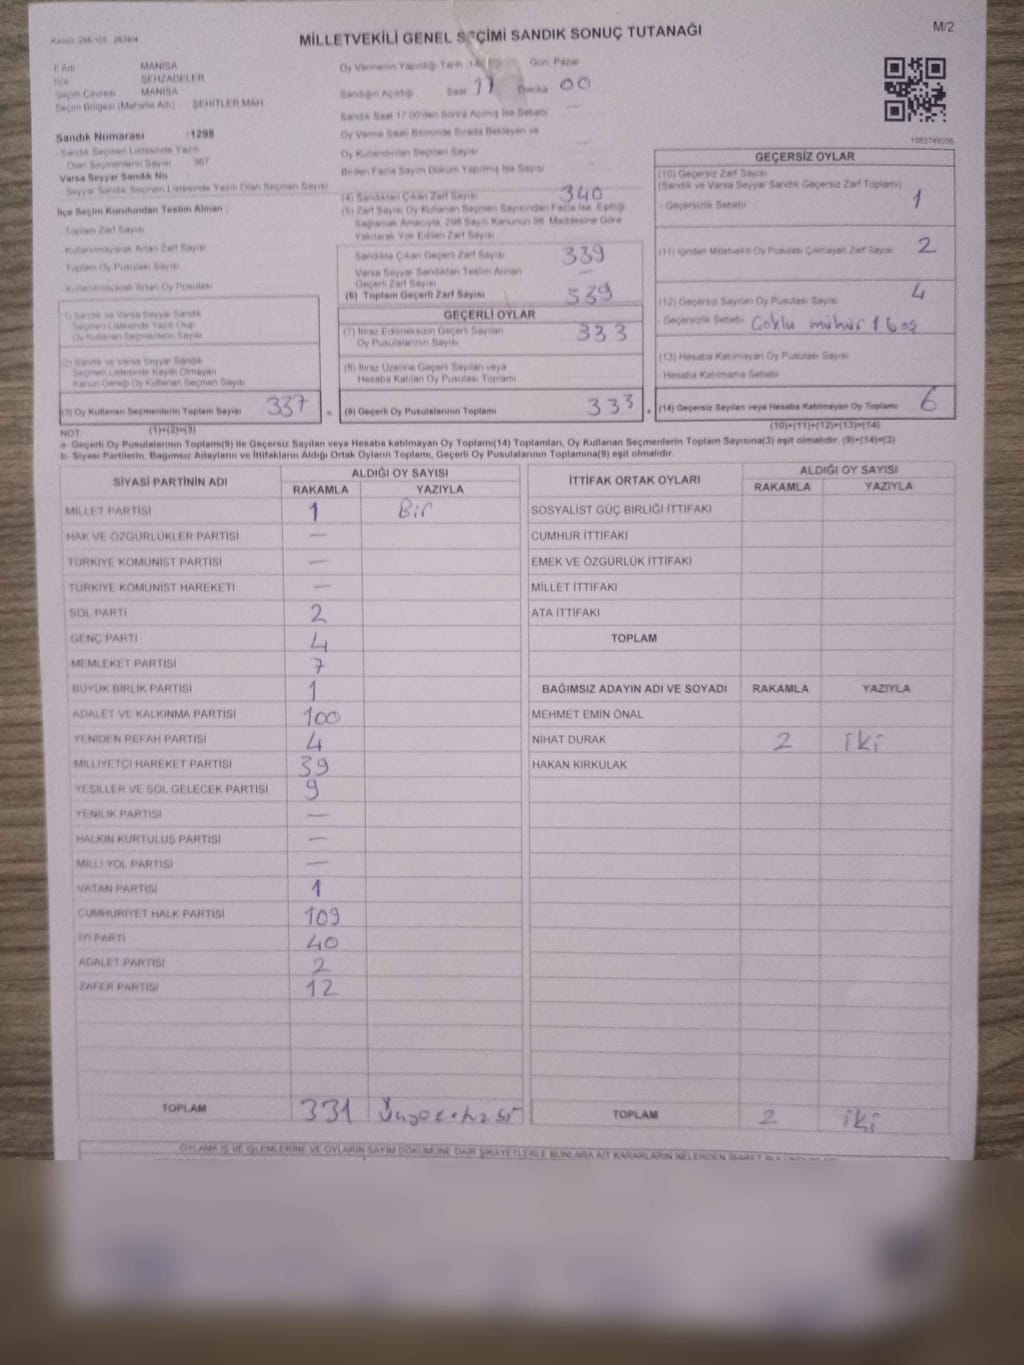 MİLLETVEKİLİ GENEL SEÇİMİ SANDIK SONUÇ TUTANAĞI
M/2
İl Adı MANİSA
İlçe ŞEHZADELER
Seçim Çevresi MANİSA
Seçim Bölgesi (Mahalle Adı) ŞEHİTLER MAH.
Sandık Numarası :1298
Sandık Seçmen Listesinde Yazılı
Olan Seçmenlerin Sayısı 367
Varsa Seyyar Sandık No
Seyyar Sandık Seçmen Listesinde Yazılı Olan Seçmen Sayısı
İlçe Seçim Kurulundan Teslim Alınan :
- Toplam Zarf Sayısı
- Kullanılmayarak Artan Zarf Sayısı
- Toplam Oy Pusulası Sayısı
- Kullanılmayarak Artan Oy Pusulası
1) Sandık ve Varsa Seyyar Sandık
Seçmen Listesinde Yazılı Olup
Oy Kullanan Seçmenlerin Sayısı
(2) Sandık ve Varsa Seyyar Sandık
Seçmen Listesinde Kayıtlı Olmayan
Kanun Gereği Oy Kullanan Seçmen Sayısı
(3) Oy Kullanan Seçmenlerin Toplam Sayısı 337
(1)+(2)=(3)
Oy Vermenin Yapıldığı Tarih Gün: Pazar
Sandığın Açıldığı Saat 17 Dakika 00
Sandık Saat 17.00'den Sonra Açılmış İse Sebebi
Oy Verme Saati Bitiminde Sırada Bekleyen ve
Oy Kullandırılan Seçmen Sayısı
Birden Fazla Sayım Döküm Yapılmış İse Sayısı
(4) Sandıktan Çıkan Zarf Sayısı 340
(5) Zarf Sayısı Oy Kullanan Seçmen Sayısından Fazla İse, Eşitliği
Sağlamak Amacıyla, 298 Sayılı Kanunun 98. Maddesine Göre
Yakılarak Yok Edilen Zarf Sayısı
Sandıkta Çıkan Geçerli Zarf Sayısı 339
Varsa Seyyar Sandıktan Teslim Alınan
Geçerli Zarf Sayısı —
(6) Toplam Geçerli Zarf Sayısı 339
GEÇERLİ OYLAR
(7) İtiraz Edilmeksizin Geçerli Sayılan
Oy Pusulalarının Sayısı 333
(8) İtiraz Üzerine Geçerli Sayılan veya
Hesaba Katılan Oy Pusulası Toplamı
= (9) Geçerli Oy Pusulalarının Toplamı 333 +
1083749356
GEÇERSİZ OYLAR
(10) Geçersiz Zarf Sayısı
(Sandık ve Varsa Seyyar Sandık Geçersiz Zarf Toplamı) 1
- Geçersizlik Sebebi
(11) İçinden Milletvekili Oy Pusulası Çıkmayan Zarf Sayısı 2
(12) Geçersiz Sayılan Oy Pusulası Sayısı 4
- Geçersizlik Sebebi Çoklu mühür 1 boş
(13) Hesaba Katılmayan Oy Pusulası Sayısı
- Hesaba Katılmama Sebebi
(14) Geçersiz Sayılan veya Hesaba Katılmayan Oy Toplamı 6
(10)+(11)+(12)+(13)=(14)
NOT:
a- Geçerli Oy Pusulalarının Toplamı(9) ile Geçersiz Sayılan veya Hesaba katılmayan Oy Toplamı(14) Toplamları, Oy Kullanan Seçmenlerin Toplam Sayısına(3) eşit olmalıdır. (9)+(14)=(3)
b- Siyasi Partilerin, Bağımsız Adayların ve İttifakların Aldığı Ortak Oyların Toplamı, Geçerli Oy Pusulalarının Toplamına(9) eşit olmalıdır.
SİYASİ PARTİNİN ADI ALDIĞI OY SAYISI
RAKAMLA YAZIYLA
MİLLET PARTİSİ 1 Bir
HAK VE ÖZGÜRLÜKLER PARTİSİ —
TÜRKİYE KOMÜNİST PARTİSİ —
TÜRKİYE KOMÜNİST HAREKETİ —
SOL PARTİ 2
GENÇ PARTİ 4
MEMLEKET PARTİSİ 7
BÜYÜK BİRLİK PARTİSİ 1
ADALET VE KALKINMA PARTİSİ 100
YENİDEN REFAH PARTİSİ 4
MİLLİYETÇİ HAREKET PARTİSİ 39
YEŞİLLER VE SOL GELECEK PARTİSİ 9
YENİLİK PARTİSİ —
HALKIN KURTULUŞ PARTİSİ —
MİLLİ YOL PARTİSİ —
VATAN PARTİSİ 1
CUMHURİYET HALK PARTİSİ 109
İYİ PARTİ 40
ADALET PARTİSİ 2
ZAFER PARTİSİ 12
TOPLAM 331
İTTİFAK ORTAK OYLARI ALDIĞI OY SAYISI
RAKAMLA YAZIYLA
SOSYALİST GÜÇ BİRLİĞİ İTTİFAKI
CUMHUR İTTİFAKI
EMEK VE ÖZGÜRLÜK İTTİFAKI
MİLLET İTTİFAKI
ATA İTTİFAKI
TOPLAM
BAĞIMSIZ ADAYIN ADI VE SOYADI RAKAMLA YAZIYLA
MEHMET EMİN ÖNAL
NİHAT DURAK 2 iki
HAKAN KIRKULAK
TOPLAM 2 iki
OYLAMA İŞ VE İŞLEMLERİNE VE OYLARIN SAYIM DÖKÜMÜNE DAİR ŞİKAYETLERLE BUNLARA AİT KARARLARIN NELERDEN İBARET